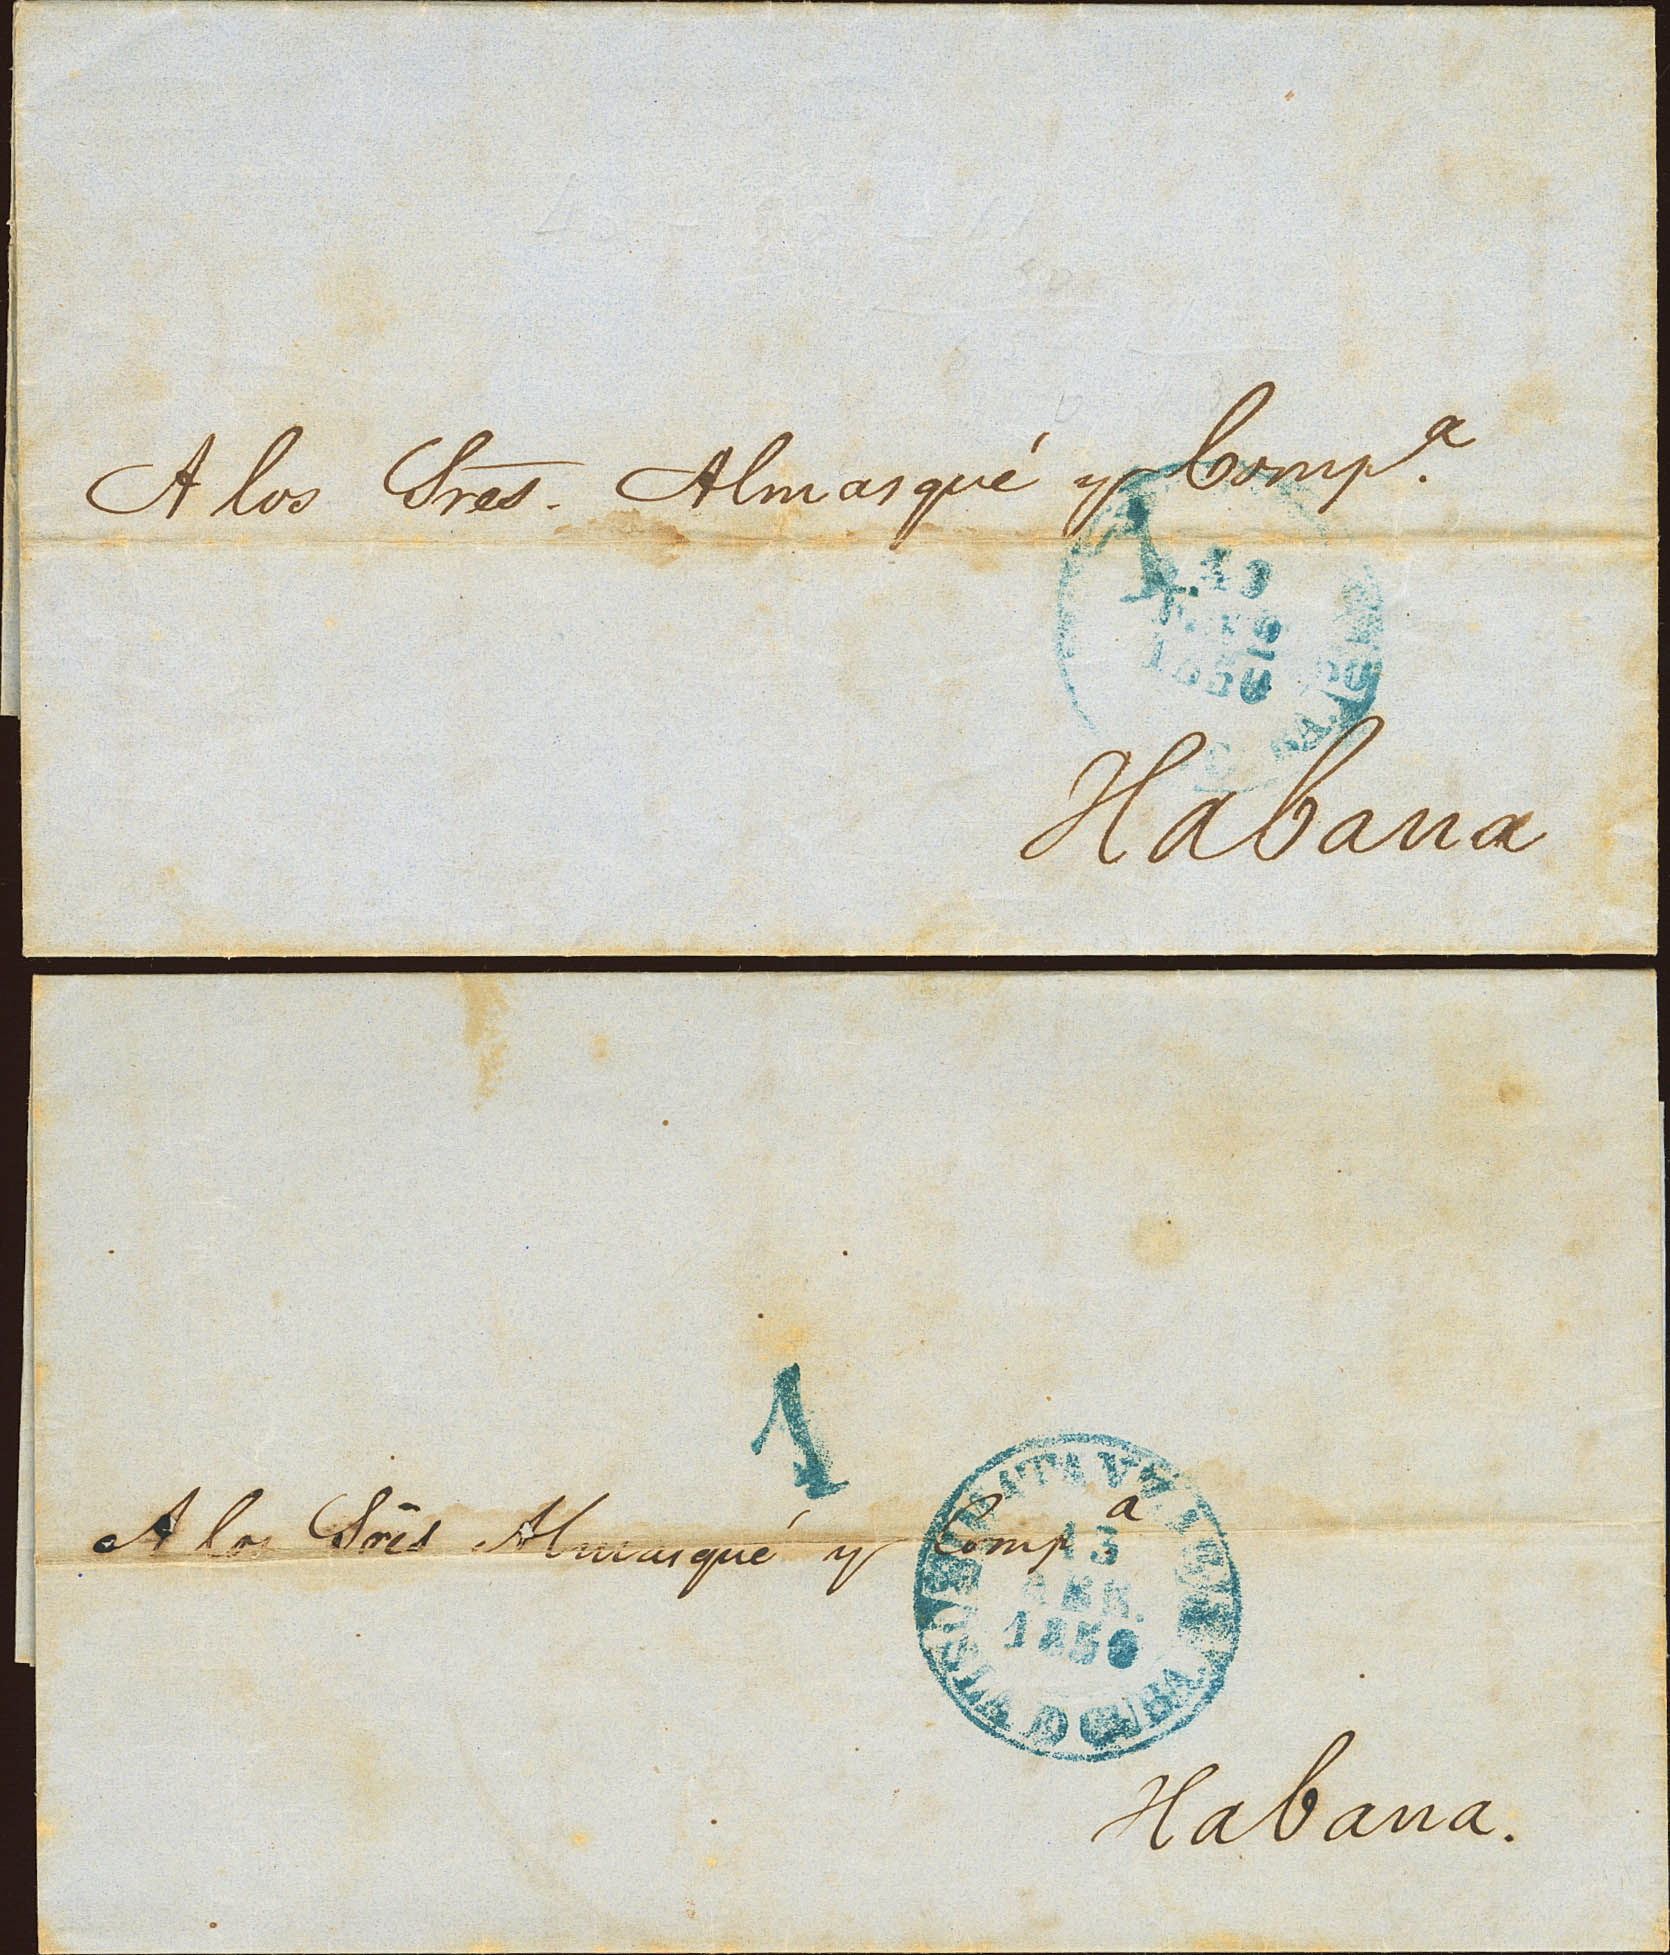 A los Sres. Almasqué y Comp.ª
1
1856
Habana
1
A los Sres Almasqué y Comp.ª
13
ABR.
1856
CUBA.
Habana.